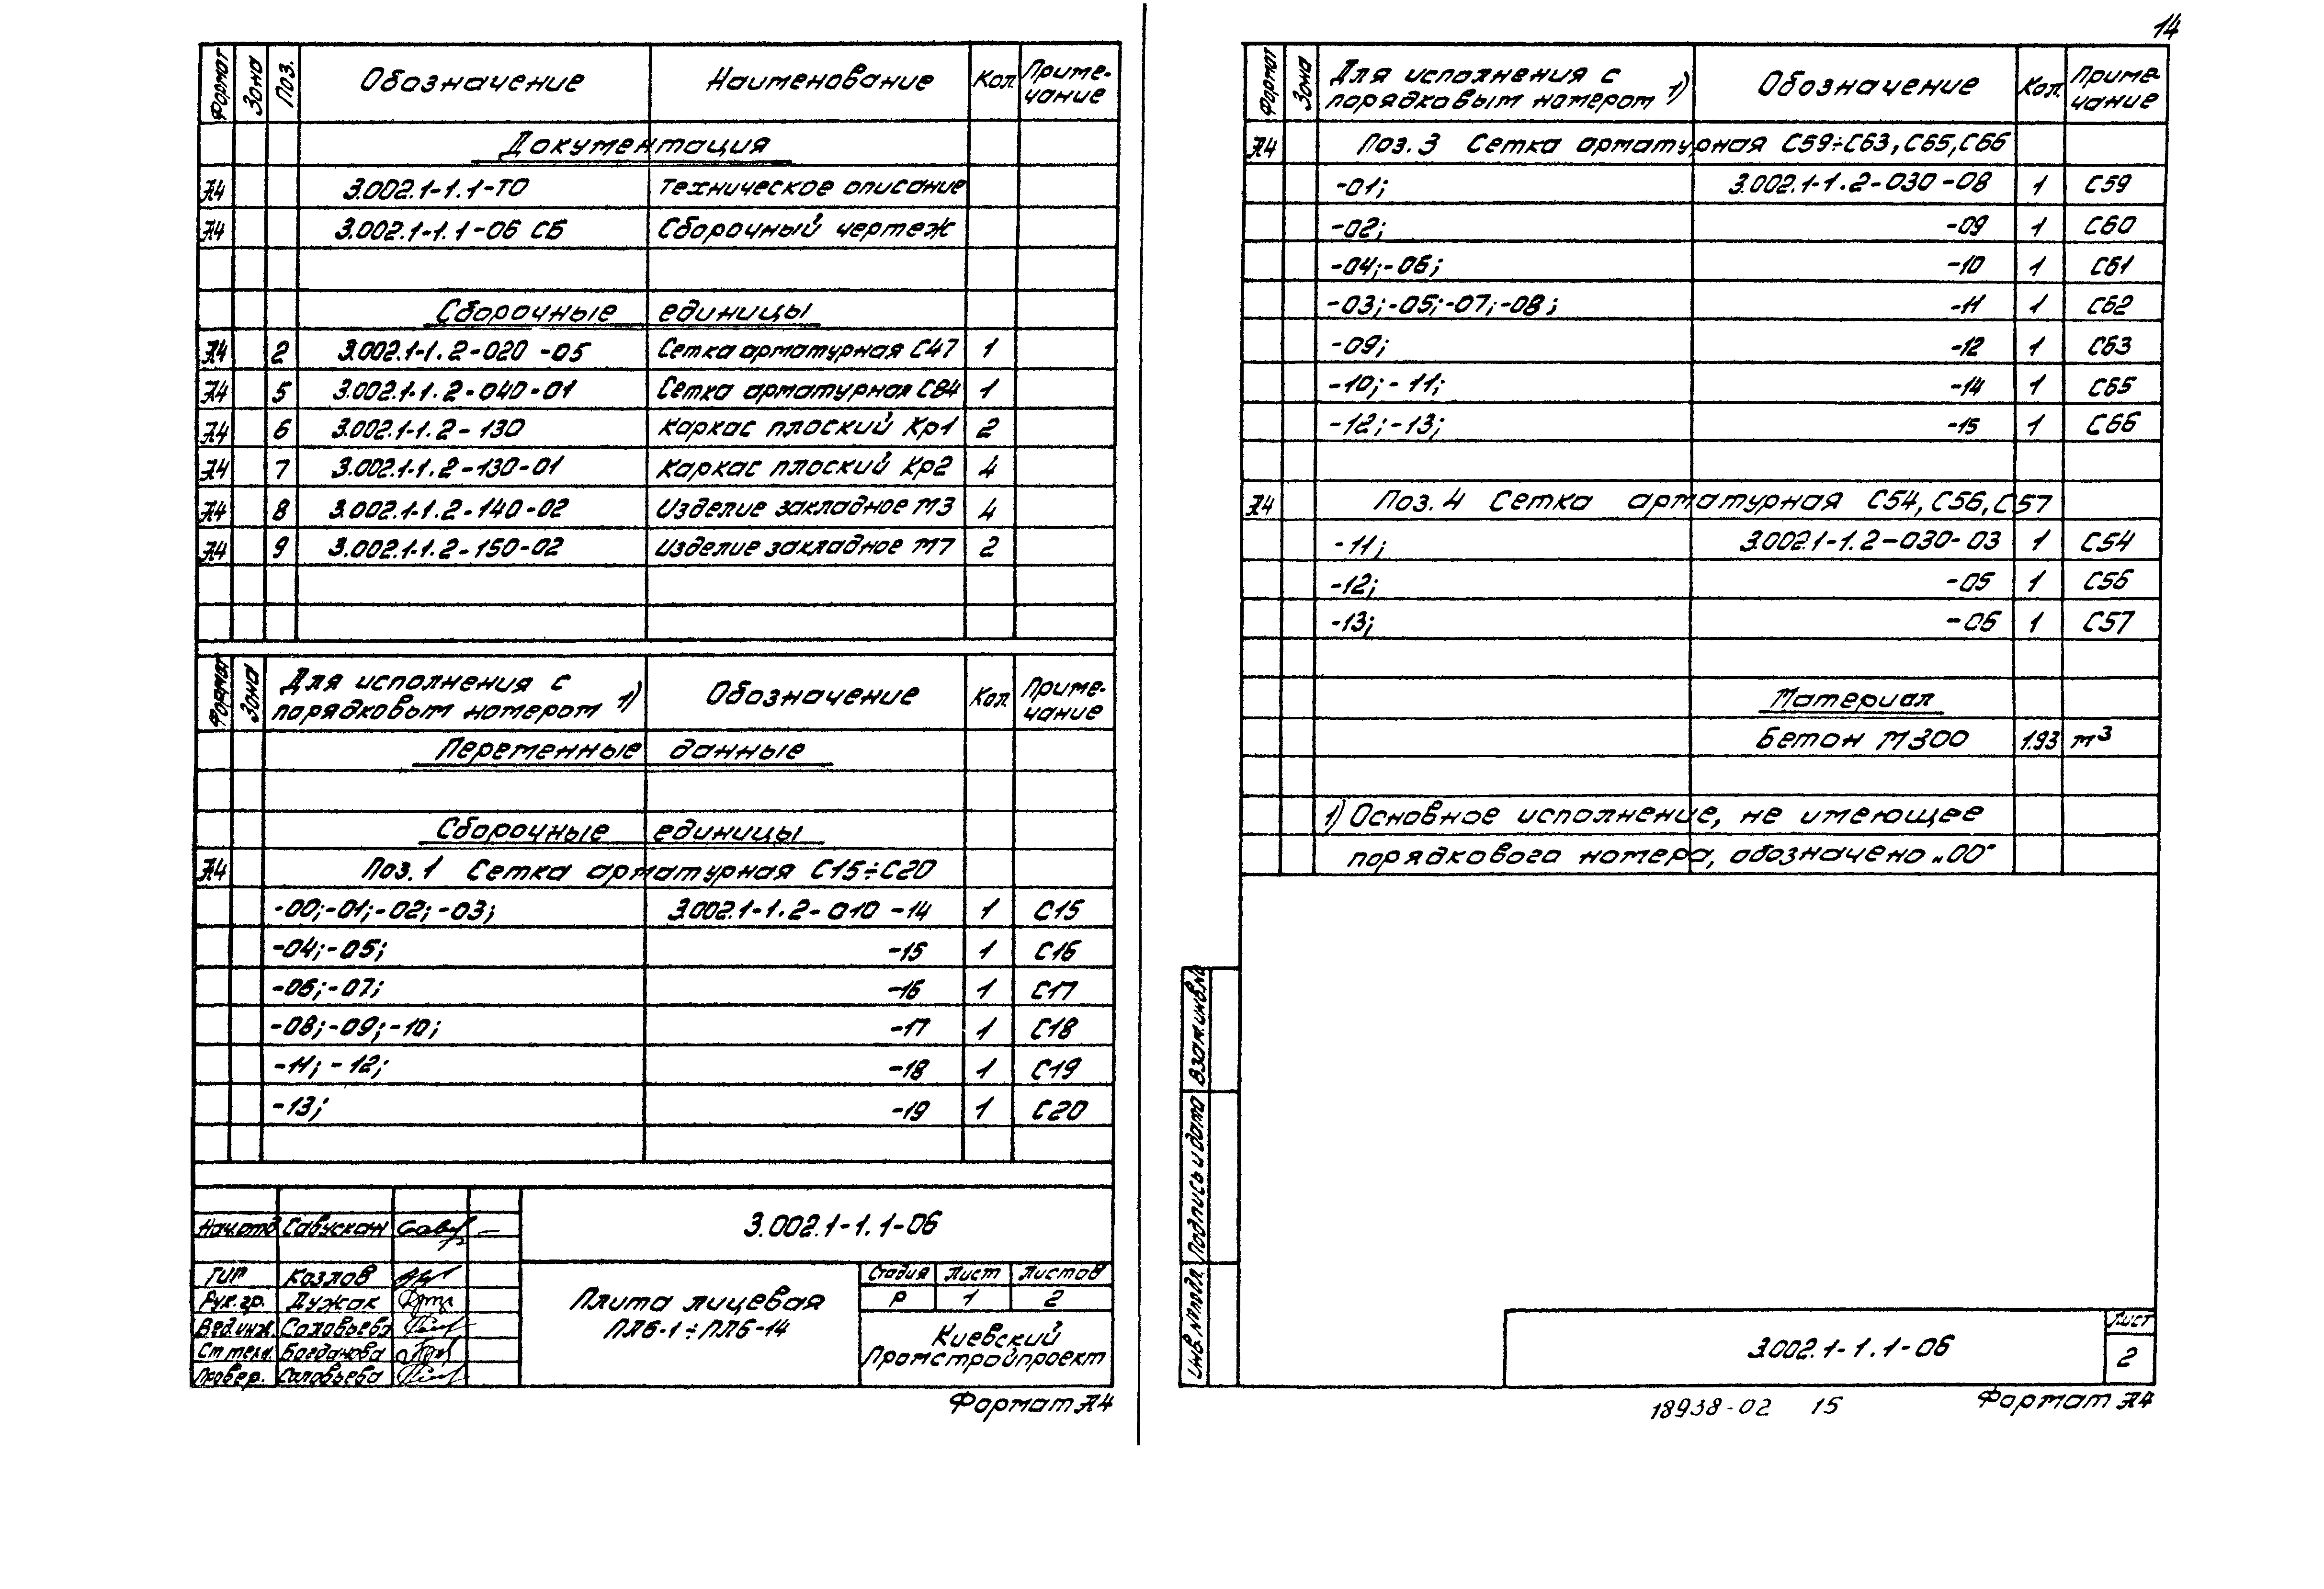 14
Формат Зона Поз. Обозначение Наименование Кол. Приме-чание
Документация
А4 3.002.1-1.1-ТО Техническое описание
А4 3.002.1-1.1-06 СБ Сборочный чертеж
Сборочные единицы
А4 2 3.002.1-1.2-020-05 Сетка арматурная С47 1
А4 5 3.002.1-1.2-040-01 Сетка арматурная С84 1
А4 6 3.002.1-1.2-130 Каркас плоский Кр1 2
А4 7 3.002.1-1.2-130-01 Каркас плоский Кр2 4
А4 8 3.002.1-1.2-140-02 Изделие закладное М3 4
А4 9 3.002.1-1.2-150-02 Изделие закладное М7 2
Формат Зона Для исполнения с порядковым номером 1) Обозначение Кол. Приме-чание
Переменные данные
Сборочные единицы
А4 Поз.1 Сетка арматурная С15÷С20
-00;-01;-02;-03; 3.002.1-1.2-010-14 1 С15
-04;-05; -15 1 С16
-06;-07; -16 1 С17
-08;-09;-10; -17 1 С18
-11;-12; -18 1 С19
-13; -19 1 С20
Нач.отд Савускан
ГИП Козлов
Рук.гр. Дужак
Вед.инж. Соловьева
Ст.техн. Богданова
Провер. Соловьева
3.002.1-1.1-06
Плита лицевая
ПЛ6-1÷ПЛ6-14
Стадия Лист Листов
Р 1 2
Киевский
Промстройпроект
Формат А4
Формат Зона Для исполнения с порядковым номером 1) Обозначение Кол. Приме-чание
А4 Поз.3 Сетка арматурная С59÷С63,С65,С66
-01; 3.002.1-1.2-030-08 1 С59
-02; -09 1 С60
-04;-06; -10 1 С61
-03;-05;-07;-08; -11 1 С62
-09; -12 1 С63
-10;-11; -14 1 С65
-12;-13; -15 1 С66
А4 Поз.4 Сетка арматурная С54,С56,С57
-11; 3.002.1-1.2-030-03 1 С54
-12; -05 1 С56
-13; -06 1 С57
Материал
Бетон М300 1.93 м³
1) Основное исполнение, не имеющее
порядкового номера, обозначено „00"
Взам.инв.№
Подпись и дата
Инв.№ подл.
3.002.1-1.1-06
Лист
2
18938-02 15
Формат А4